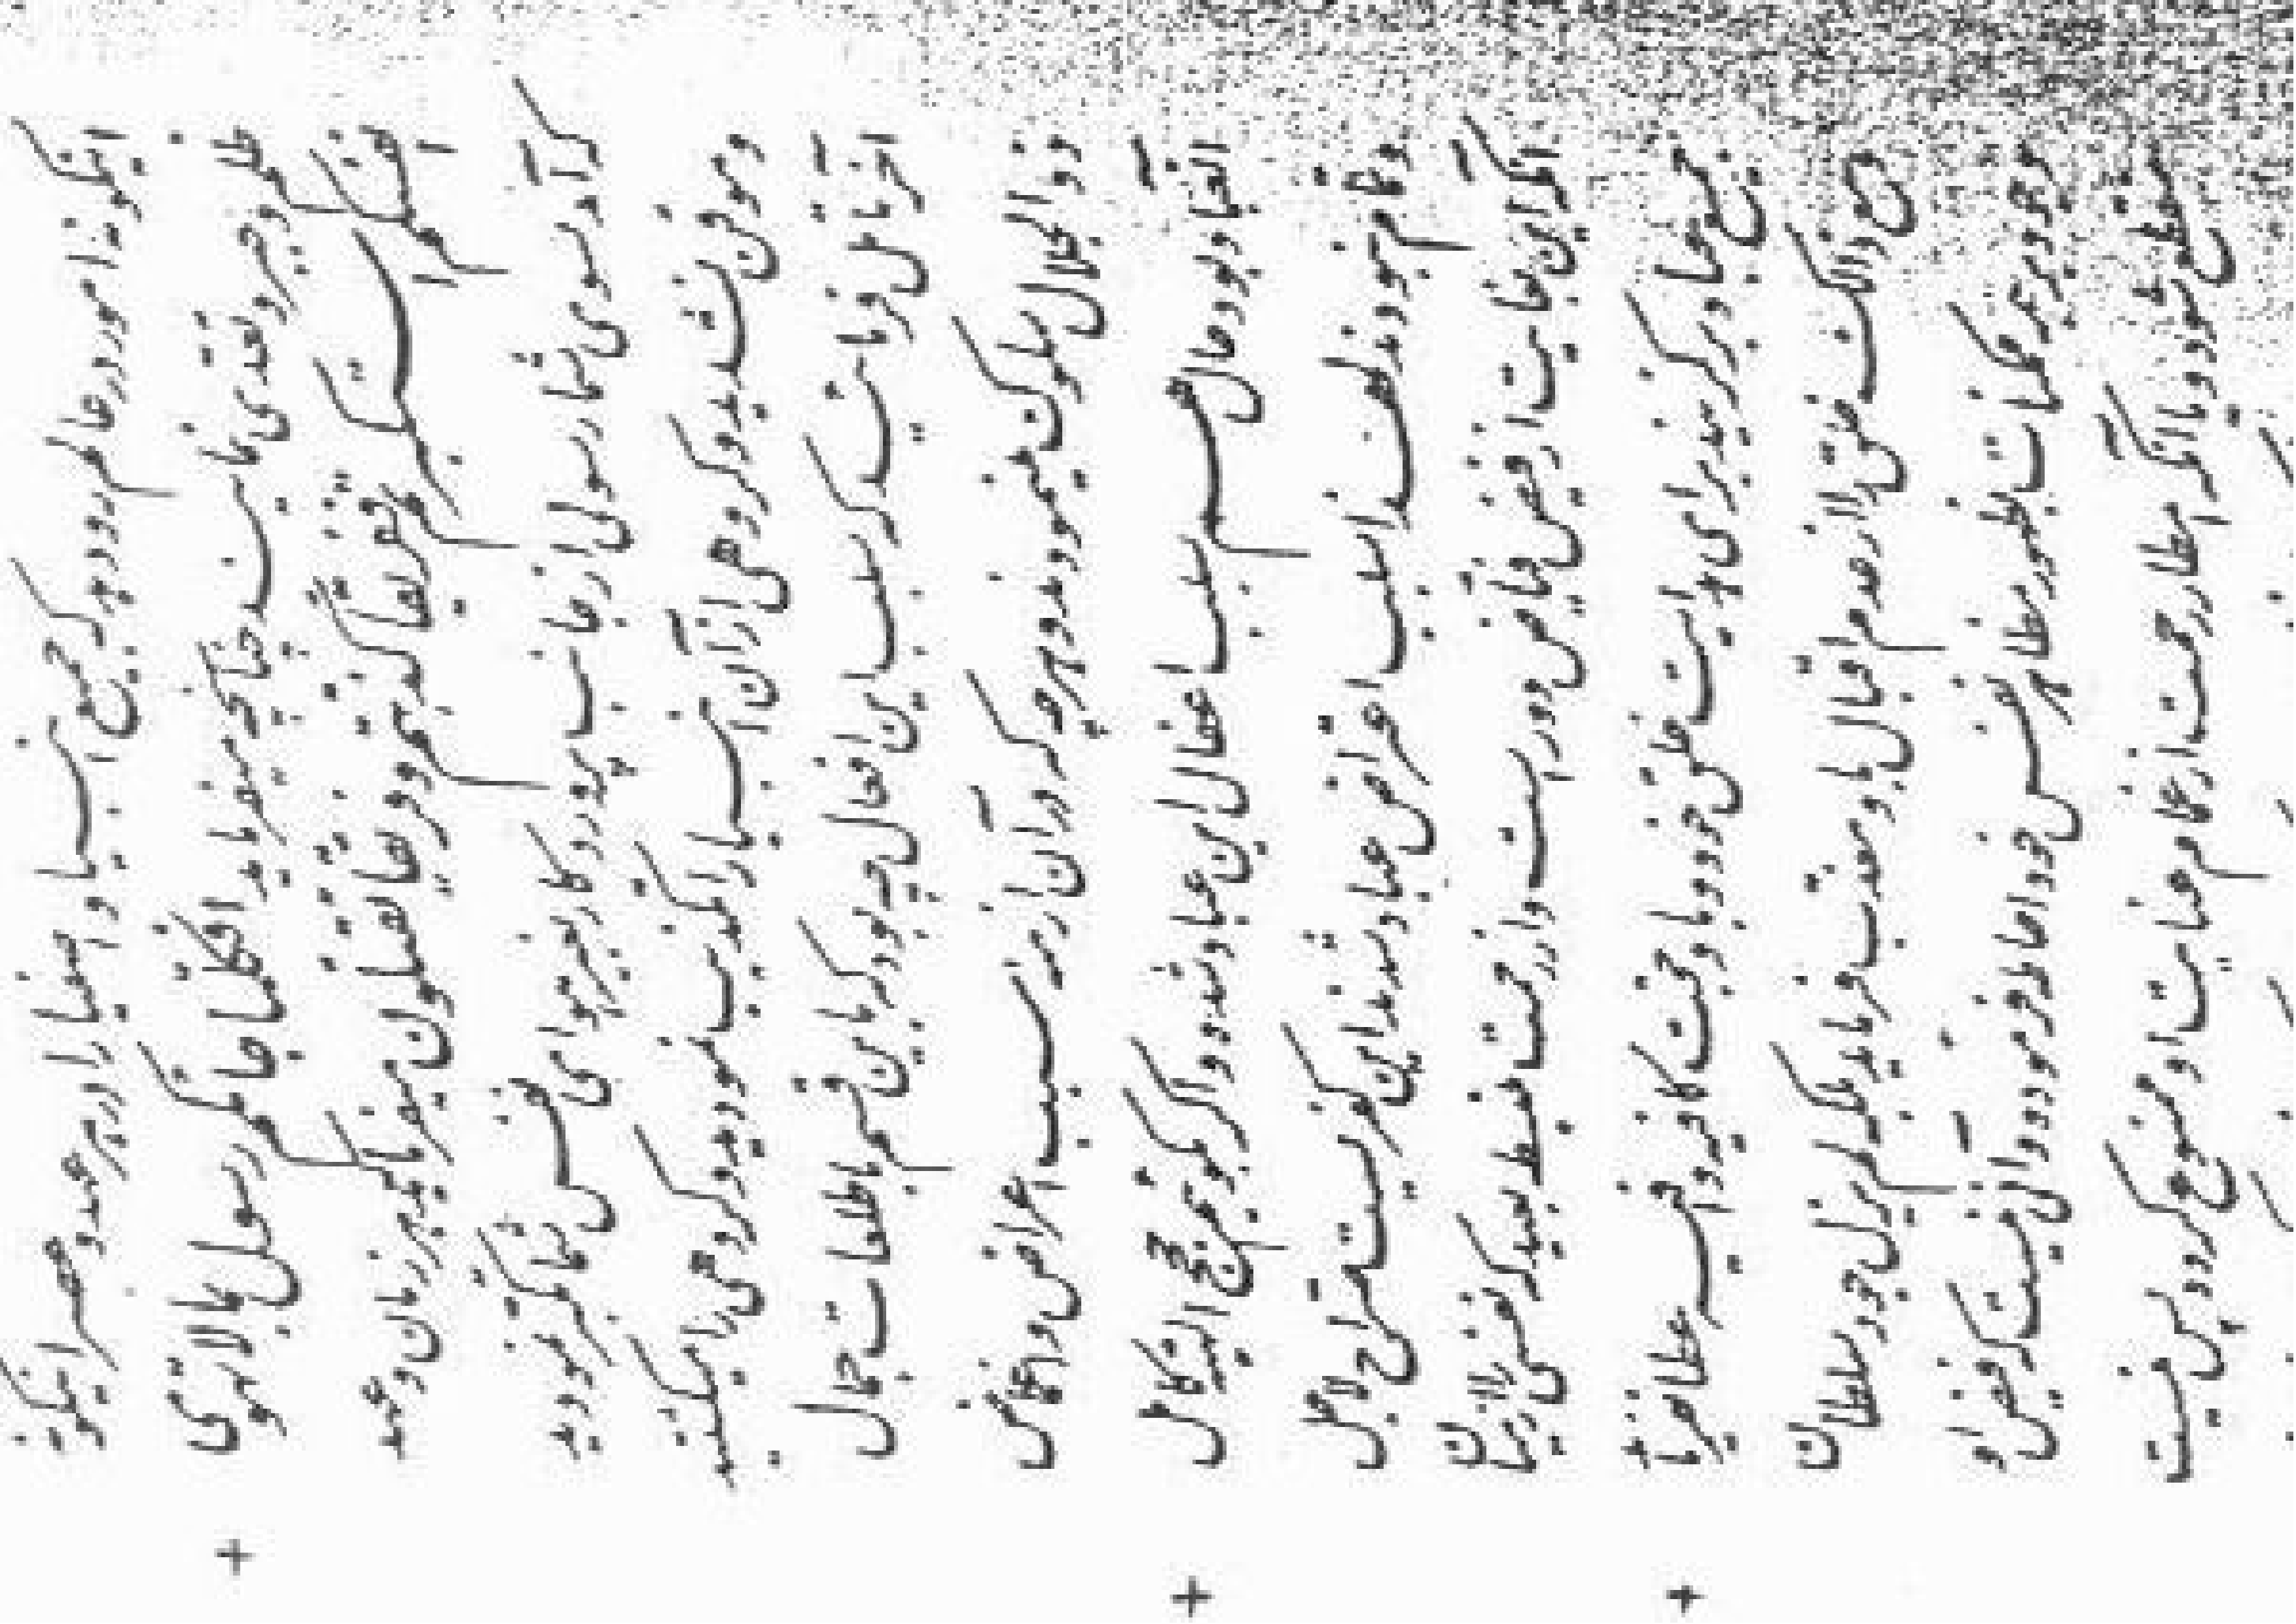 اینگونه امور در عالم رو دهد که جمیع انبیا و اصفیا را در هر عهد و عصر اینگونه
ظلم و جبر و تعدی نمایند چنانچه میفرماید افکلما جائکم رسول بما لا تهوی
انفسکم استکبرتم ففریقا کذبتم و فریقا تقتلون میفرماید هر زمان و عهد
که آمد بسوی شما رسولی از جانب پروردگار بغیر هوای نفس شما تکبر نمودید
و موقن نشدید و گروهی از آن انبیا را تکذیب نمودید و گروهی را میکشتید
آخر تأمل فرمائید که سبب این افعال چه بود که باین قسم با طلعات جمال
ذو الجلال سلوک مینمودند و هر چه که در آن ازمنه سبب اعراض و اغماض
آن عباد بود حال هم سبب اغفال این عباد شده و اگر بگوئیم حجج الهیه کامل
و تمام نبود لهذا سبب اعتراض عباد شد این کفریست صراح لاجل
آنکه این بغایت از فیض فیاض دور است و از رحمت منبسطه بعید که نفسی را از میان
جمیع عباد برگزیند برای هدایت خلق خود و باو حجت کافیه وافیه عطا نفرماید
و معذلک خلق را از عدم اقبال باو معذب فرماید بلکه لم یزل جود سلطان
وجود بر همه ممکنات بظهور مظاهر نفس خود احاطه فرموده و آنی نیست که فیض او
منقطع شود و یا آنکه امطار رحمت از غمام عنایت او ممنوع گردد پس نیست